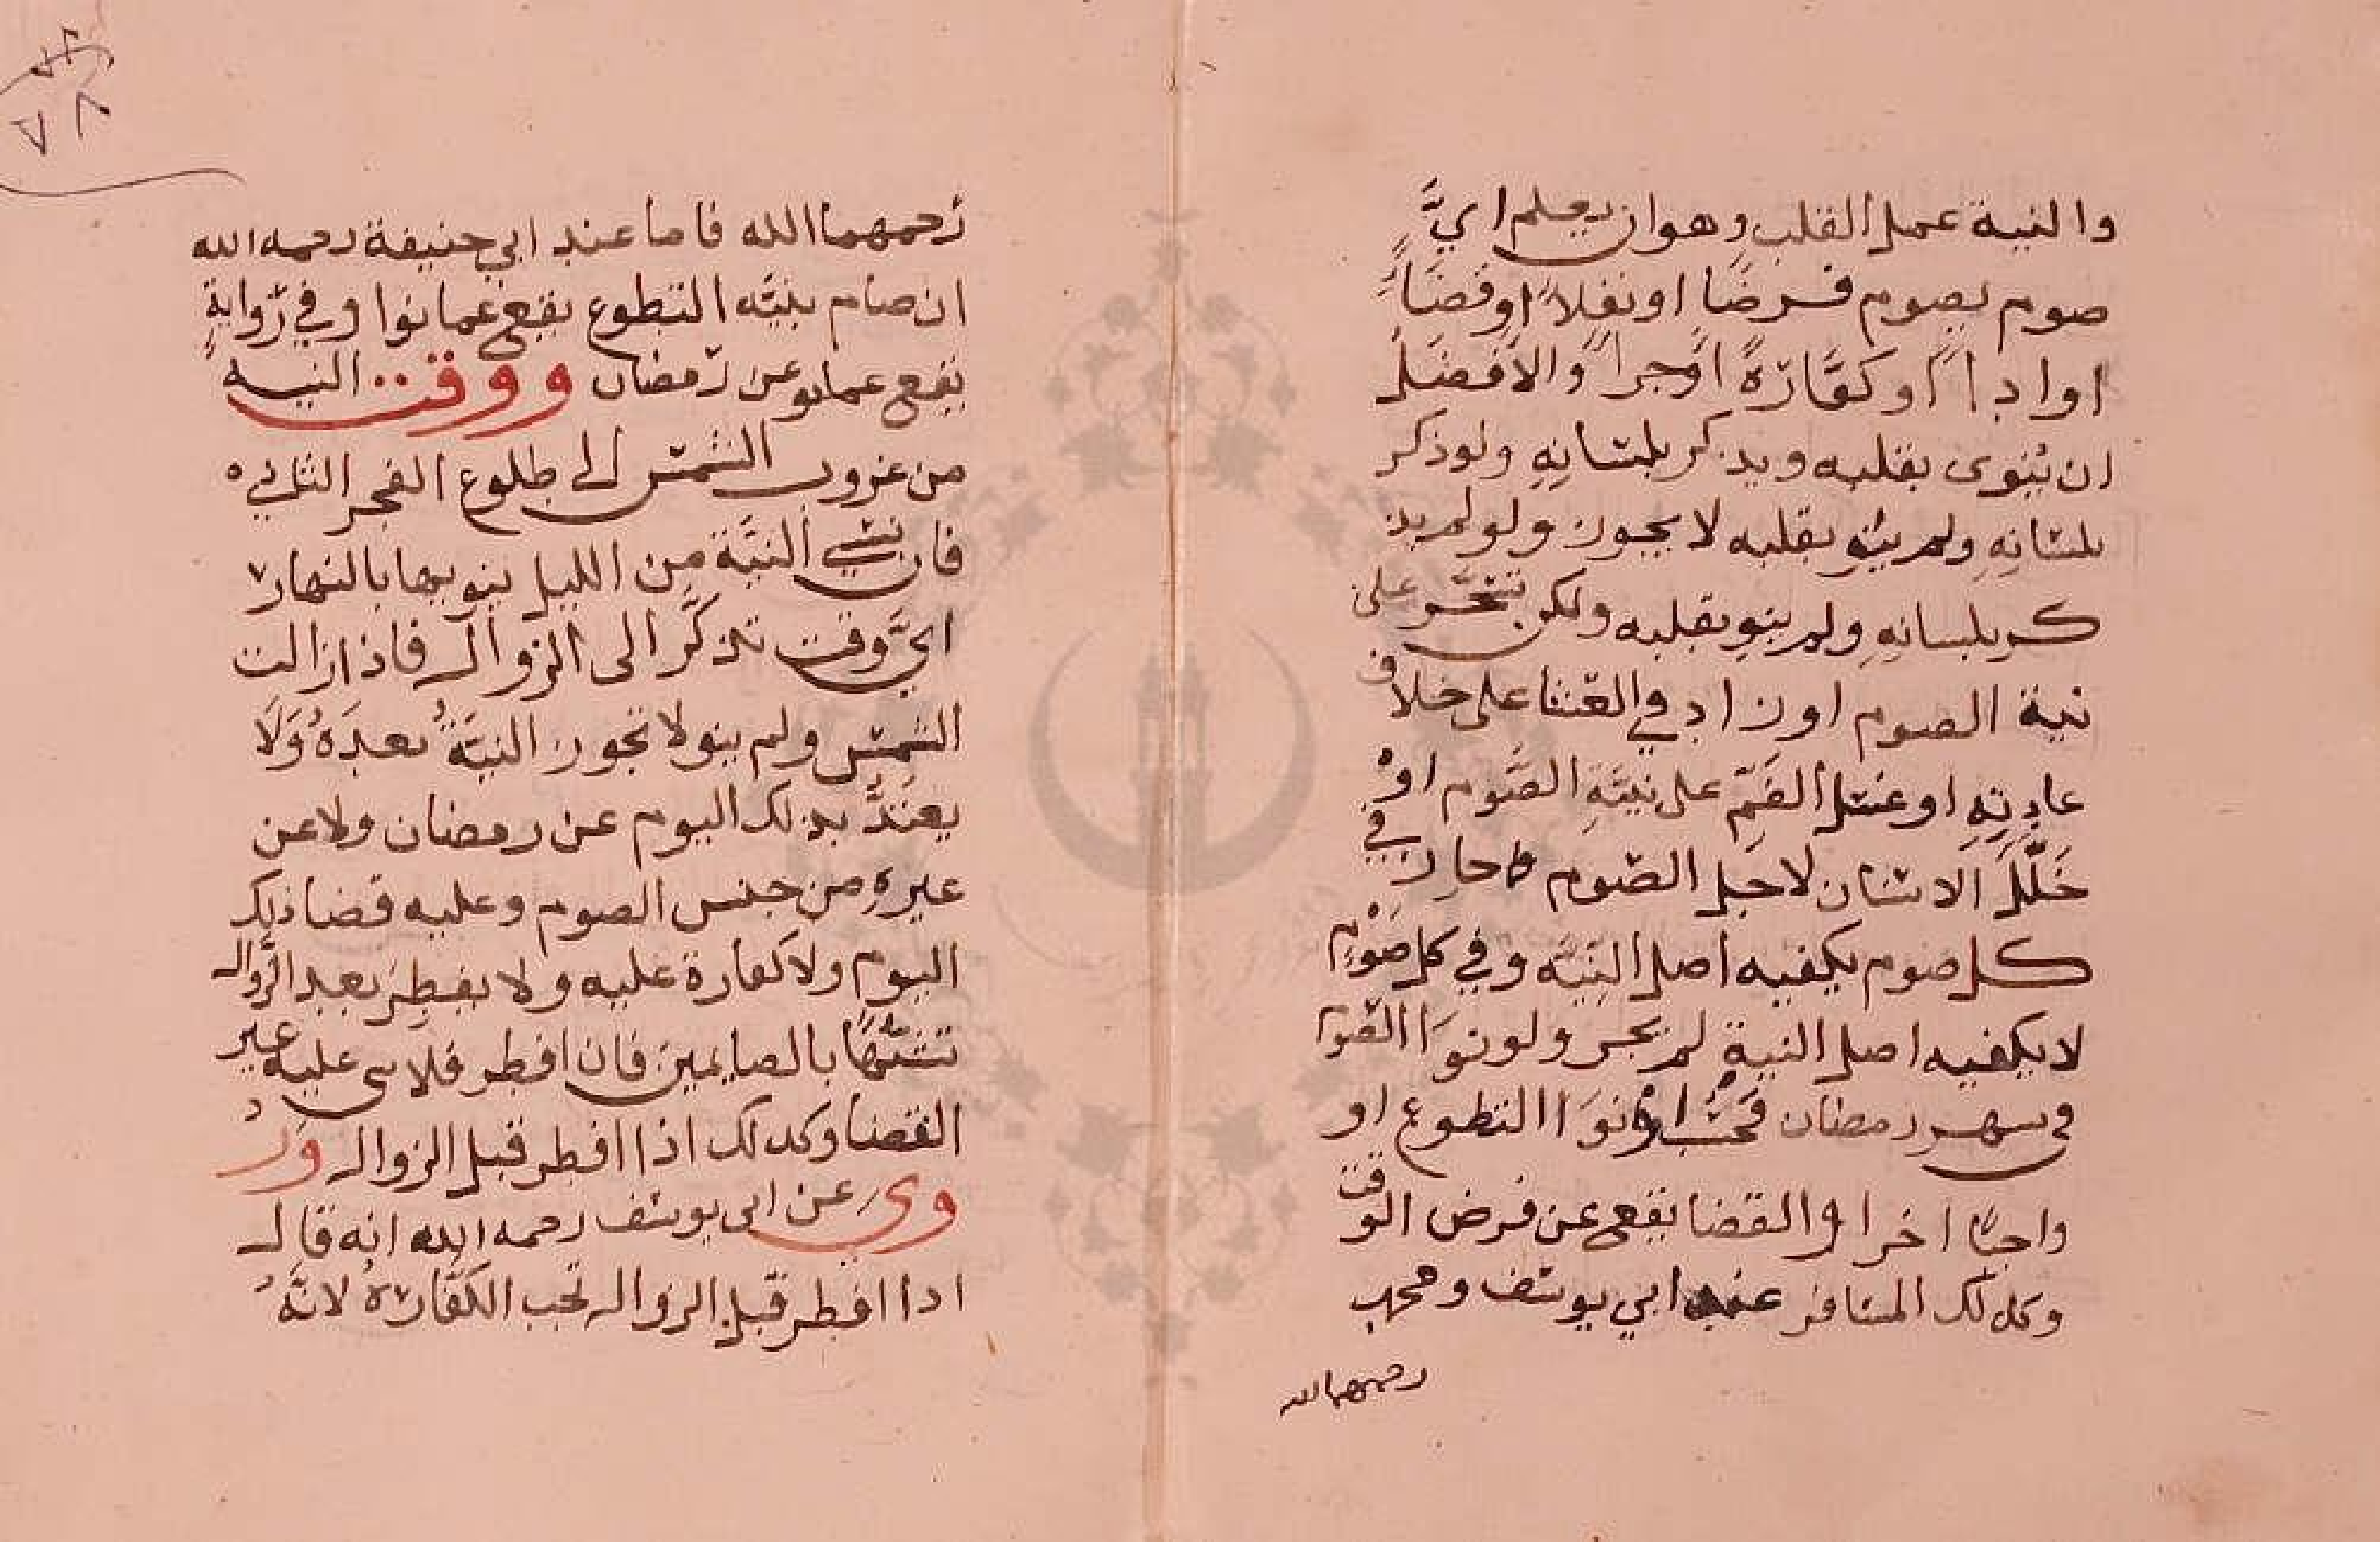 والنية عمل القلب وهو ان يعلم ايَّ
صوم يصوم فرضًا او نفلاً اوقضَاً
اوادااً اوكفَّارَةً اوجراً والافضَل
ان يَنوى بقلبه ويذكر بلسَانِهِ ولوذكر
بلسَانِهِ ولم ينو بقلبه لا يجوز ولولم يذ
كر بلسانِهِ ولم ينوِ بقلبه ولكن تسَحَّر على
نية الصوم اوزاد في العَشا على خلاف
عادِتِهِ اوغسَل الفَمّ على نيَّةِ الصَّوم اوْ
خَلَّلَ الاسنان لاجل الصَّوم جاز في
كل صوم يكفيه اصل النِيَّه وفي كل صَوْمٍ
لا يكفيه اصل النية لم يجر ولونوَا الصَّوم
في سهر رمضان اوْ نوَا التطوع او
واجبًا اخرا والقضا يقع عن فرض الوقت
وكدلك المسَافر عند ابي يوسَف ومحمد
رحمهما الله
رَحمهما الله فاما عند ابي حنيفة رحمه الله
ان صام بنيَّه التطوع يقع عما نوا وفي رِّوايةٍ
يقع عمانو عن رَمضان ووقت النيه
من غروب الشمسَ الى طلوع الفجر الثاني ه
فان نسي النيَّة مِن الليل ينويها بالنهار
ايَّ وقت تذكَّر الى الزوال فاذا زالت
الشمسَ ولم ينو لا تجوز النيَّةُ بعدَهُ وَلَا
يعتَدَّ بذلك اليوم عن رمضان ولا عن
عيرهِ من جنس الصوم وعليه قضا ذلك
اليوم ولا كفارة عليه ولا يفطِرُ بعد الزَّوال
تشبُّهًا بالصايمين فان افطر فلا سى عليه عير
القضا وكدلك اذا افطر قبل الزوال وَرُ
وىَ عن ابى يوسَف رحمه الله انه قال
ادا افطر قبل الزوال تجب الكفَّارَةُ لانَّهُ